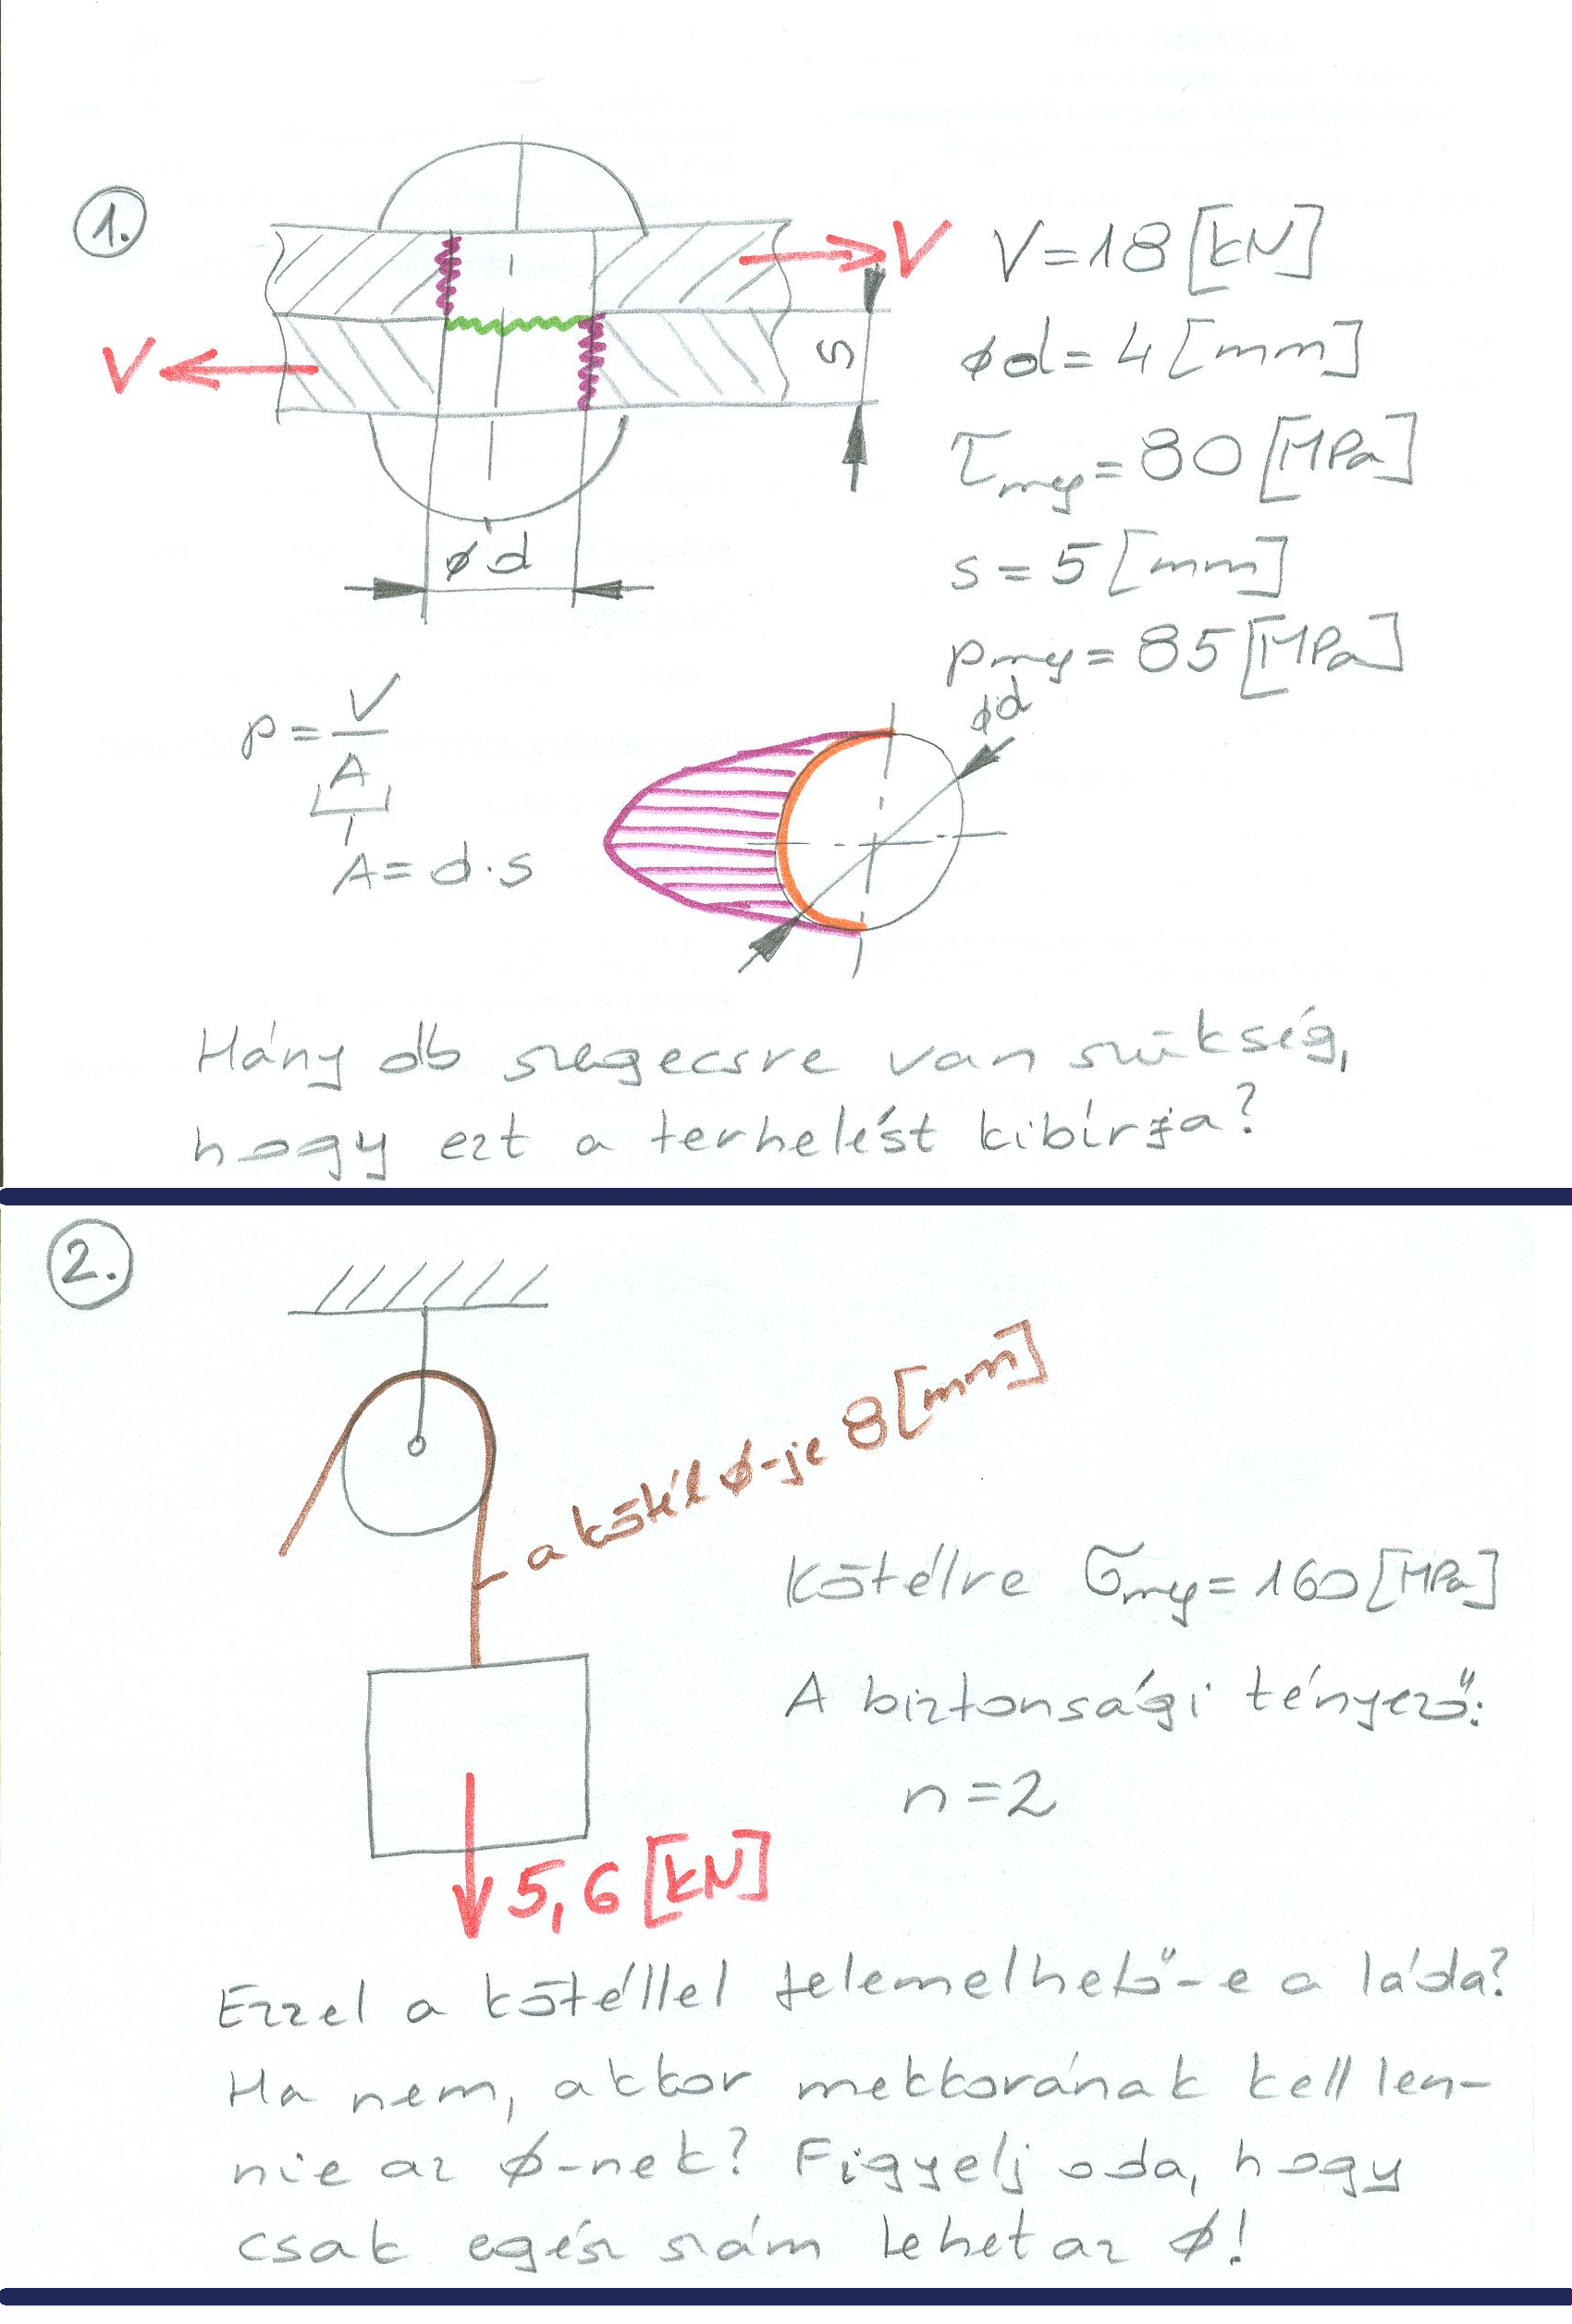 1.
V
V
V=18[kN]
ød=4[mm]
s
τmeg=80[MPa]
s=5[mm]
ød
pmeg=85[MPa]
p=V/A
ød
A=d·s
Hány db szegecsre van szükség,
hogy ezt a terhelést kibírja?
2.
a kötél ø-je 8[mm]
Kötélre σmeg=160[MPa]
A biztonsági tényező:
n=2
5,6[kN]
Ezzel a kötéllel felemelhető-e a láda?
Ha nem, akkor mekkorának kell len-
nie az ø-nek? Figyelj oda, hogy
csak egész szám lehet az ø!